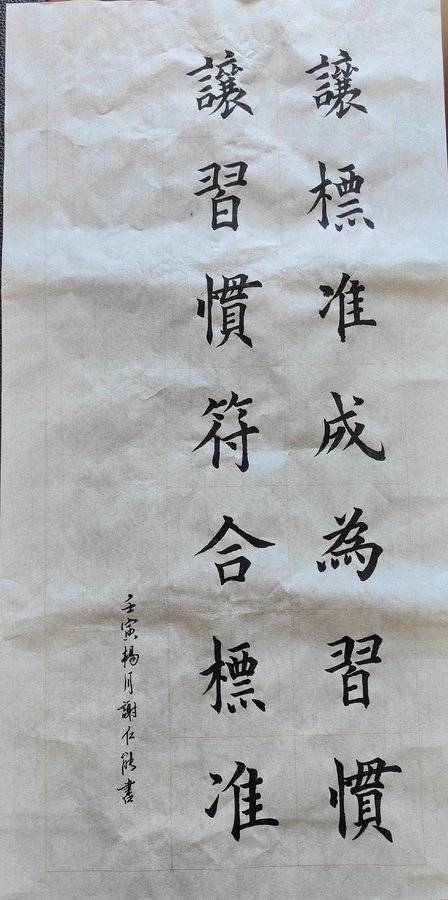 讓標准成為習慣
讓習慣符合標准
壬寅楊月謝仁能書